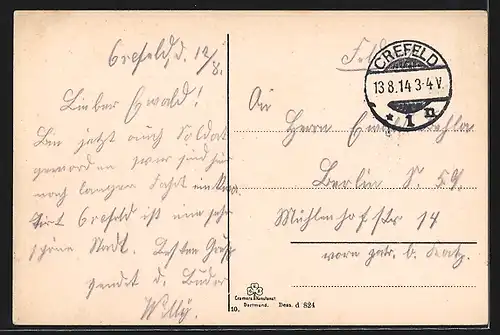 Crefeld d. 12/8.
Lieber Ewald!
Bin jetzt auch Soldat
geworden wir sind hier
nach langer Fahrt
Crefeld ist eine sehr
schöne Stadt. Besten Gruß
sendet d. Bruder
Willy.
CREFELD
13.8.14 3-4 V.
* 1 n
An
Herrn
Berlin S. 59.
Mühlenhofstr 14
vorn b.
Cramers Kunstanst.
Dortmund.
10.
Dess. d 824